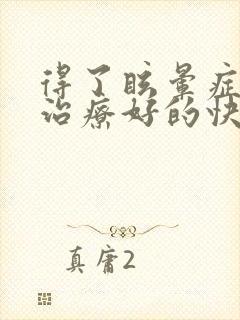 得了眩晕症
治疗好的快
真庸2